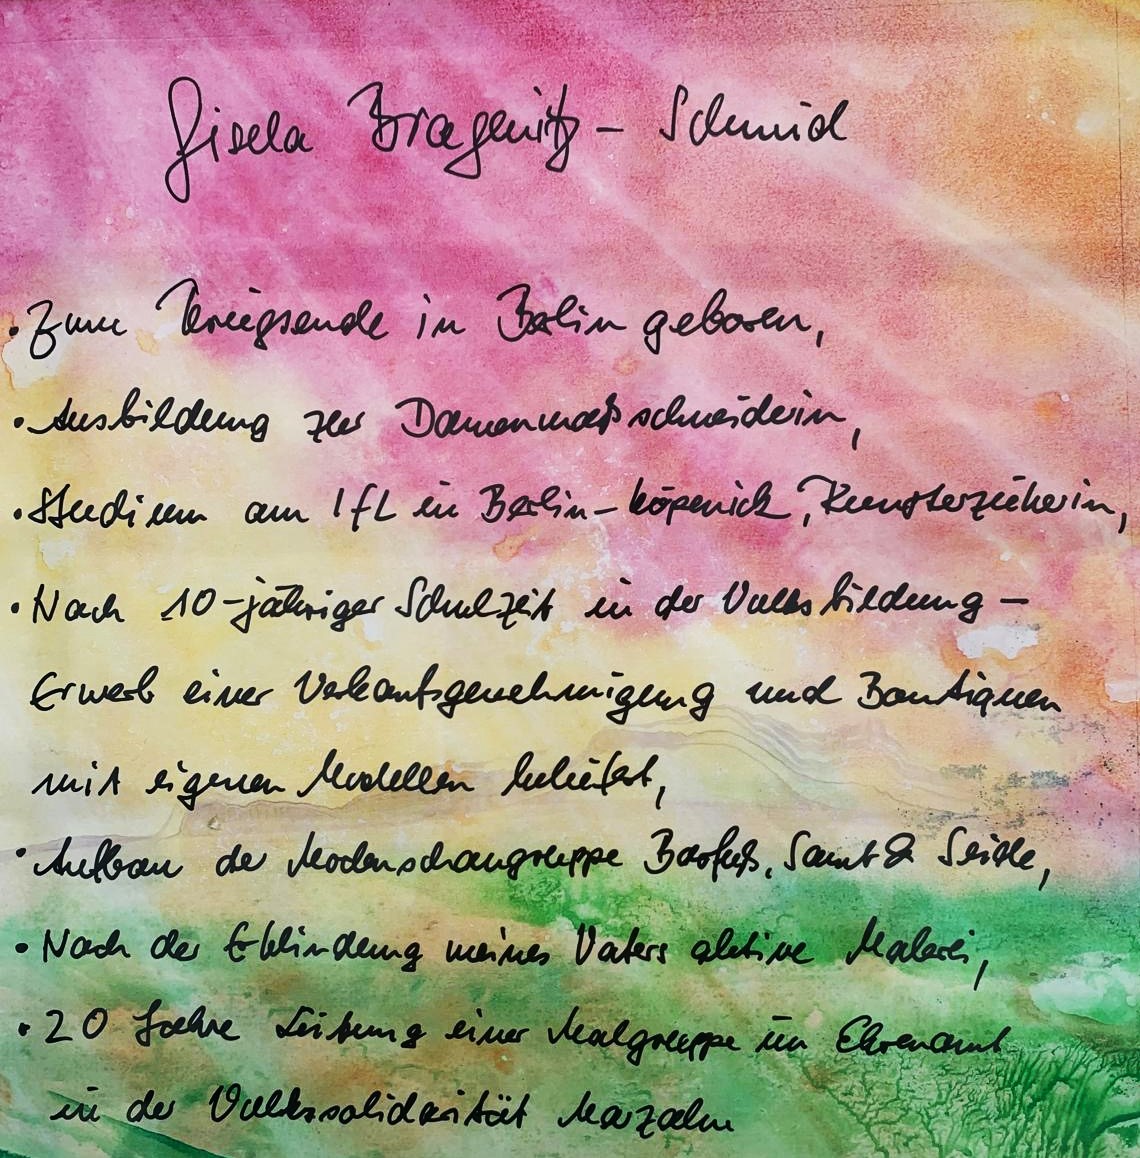 Gisela Bragenitz - Schmid
• Zum Kriegsende in Berlin geboren,
• Ausbildung zur Damenmaßschneiderin,
• Studium am IfL in Berlin-Köpenick, Kunsterzieherin,
• Nach 10-jähriger Schulzeit in der Volksbildung -
Erwerb einer Verkaufsgenehmigung und Boutiquen
mit eigenen Modellen beliefert,
• Aufbau der Modenschaugruppe Barfuß, Samt & Seide,
• Nach der Erblindung meines Vaters aktive Malerei,
• 20 Jahre Leitung einer Malgruppe im Ehrenamt
in der Volkssolidarität Marzahn